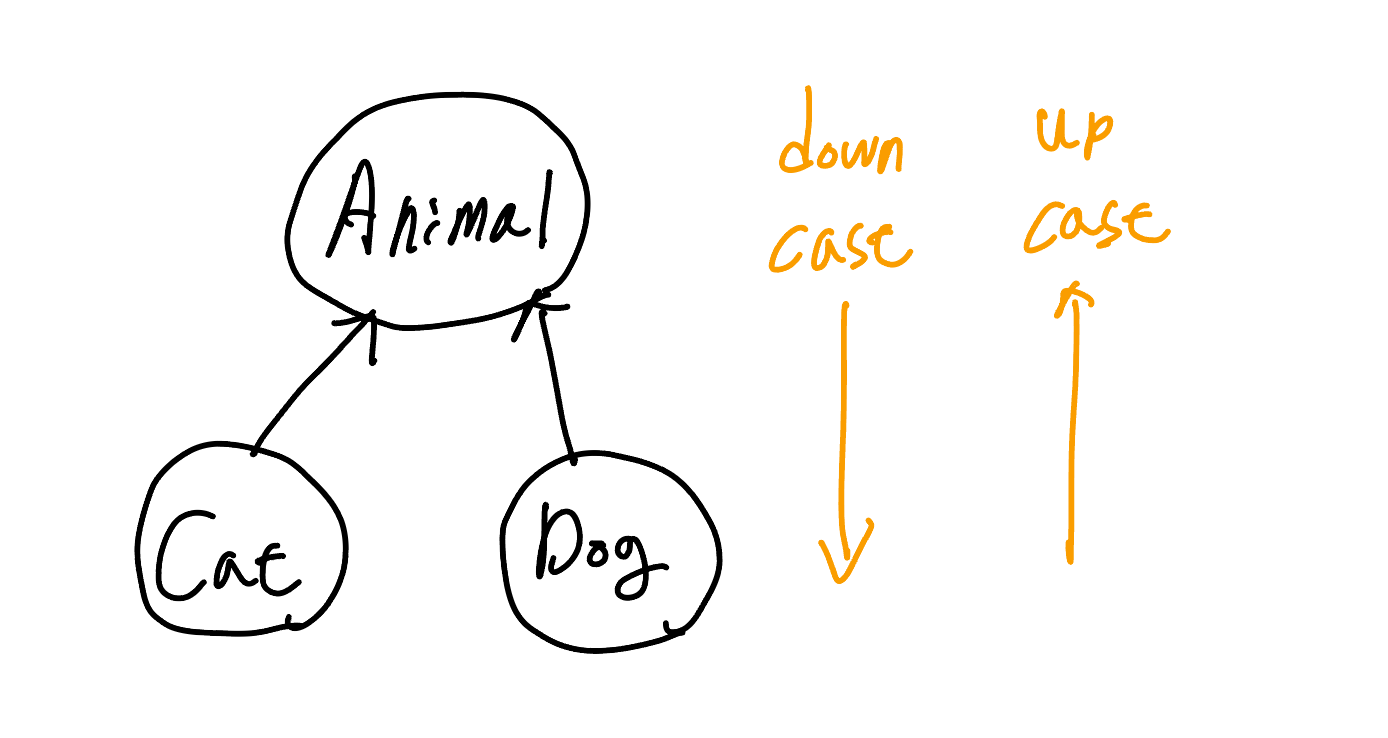 Animal
Cat
Dog
down
cast
up
cast